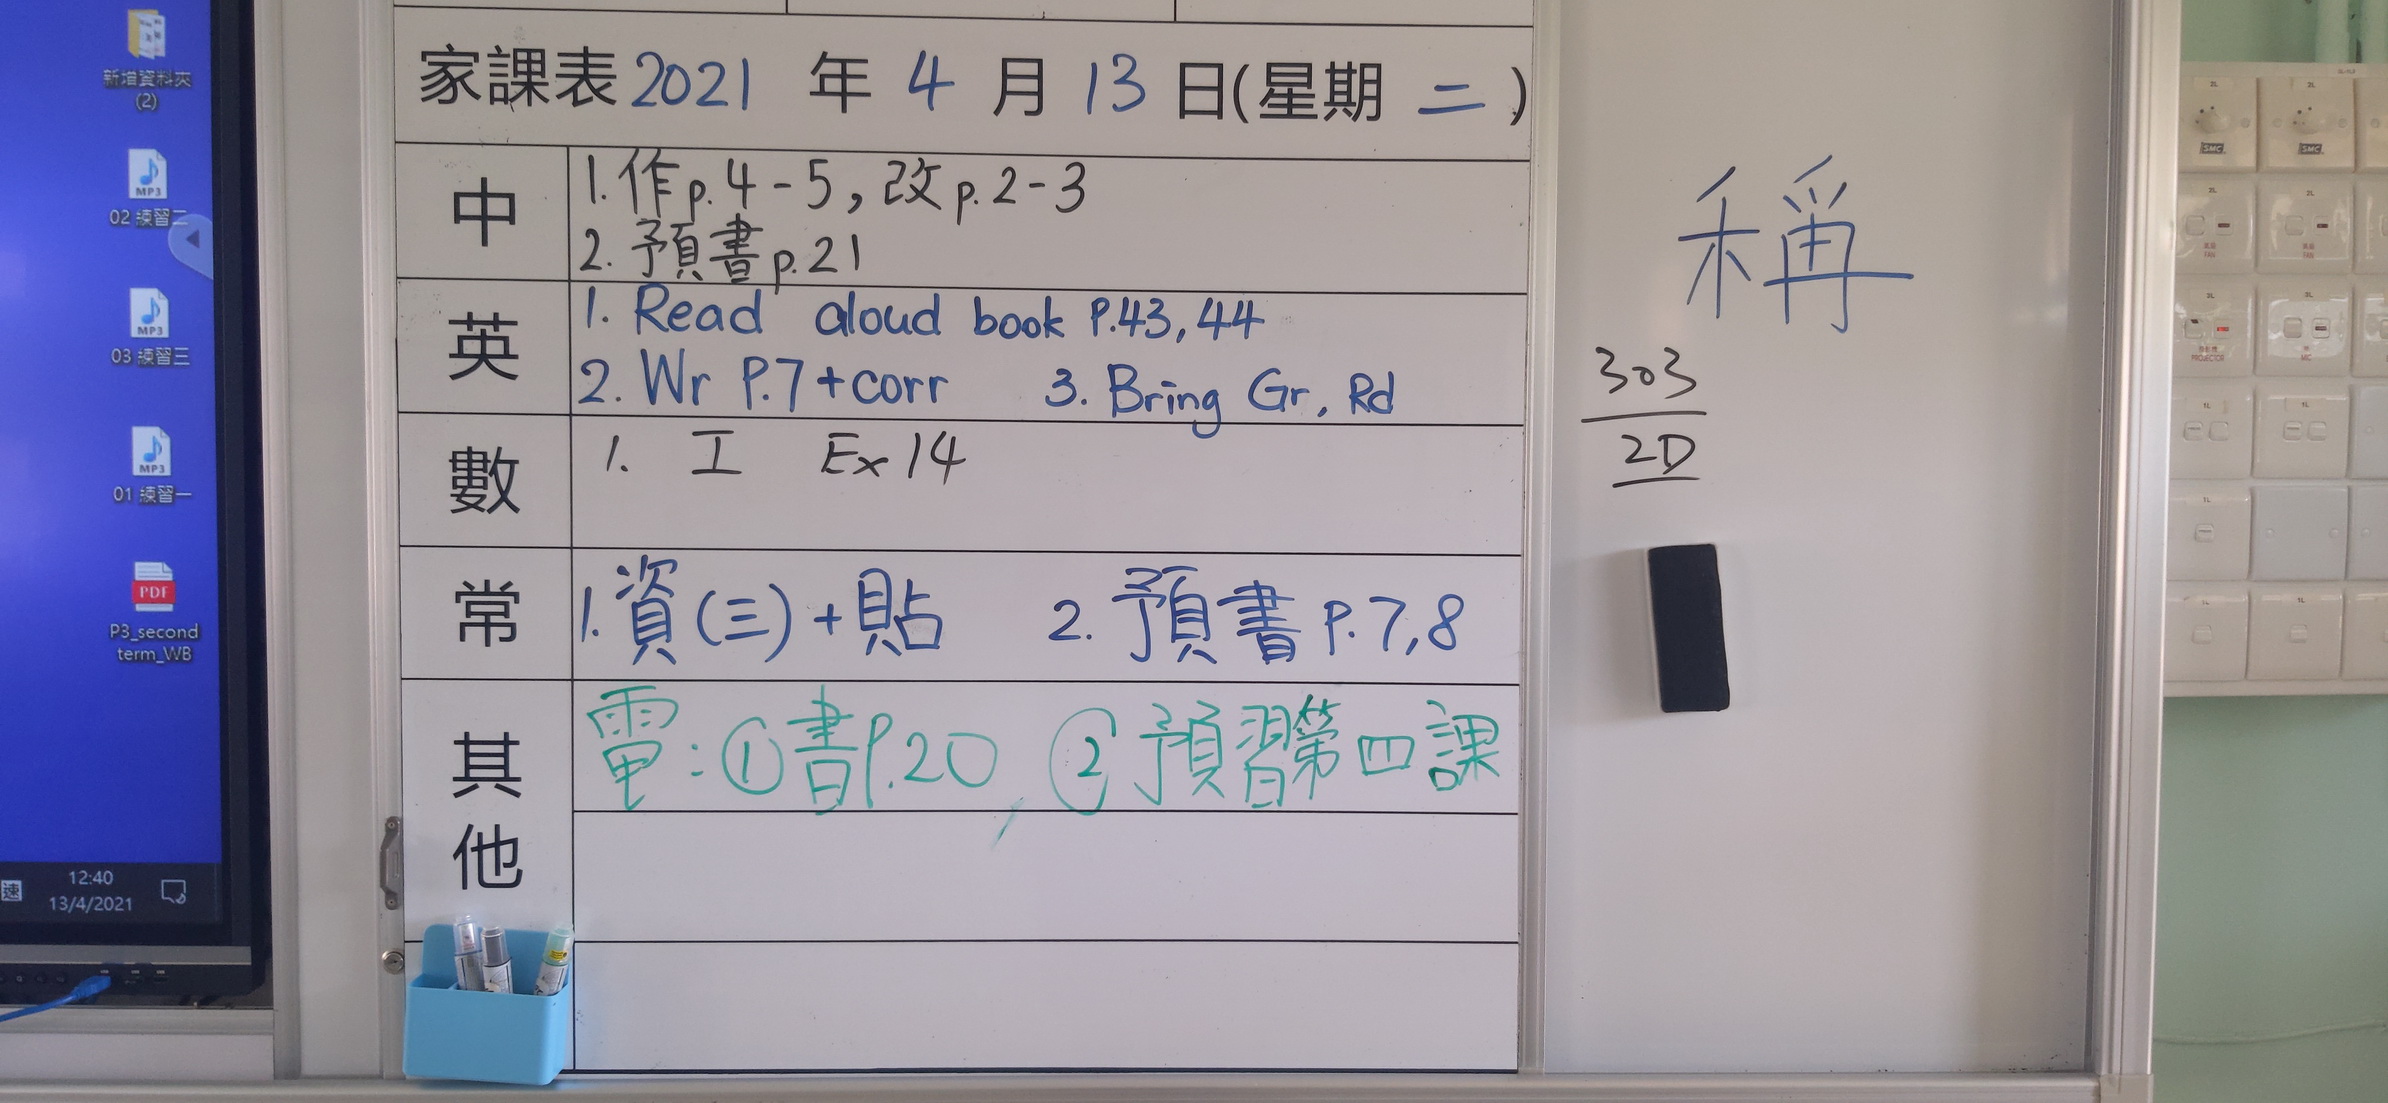 新增資料夾
(2)
02 練習二
03 練習三
01 練習一
PDF
P3_second
term_WB
速
12:40
13/4/2021
家課表 2021 年 4 月 13 日(星期 二)
中
1. 作p.4-5, 改p.2-3
2. 預書p.21
英
1. Read aloud book P.43, 44
2. Wr P.7+corr 3. Bring Gr, Rd
數
1. 工 Ex 14
常
1. 資(三)+貼 2. 預書 P.7,8
其他
電:①書P.20, ②預習第四課
稱
303
2D
MP3
MP3
MP3
SMC
SMC
FAN
FAN
PROJECTOR
MIC